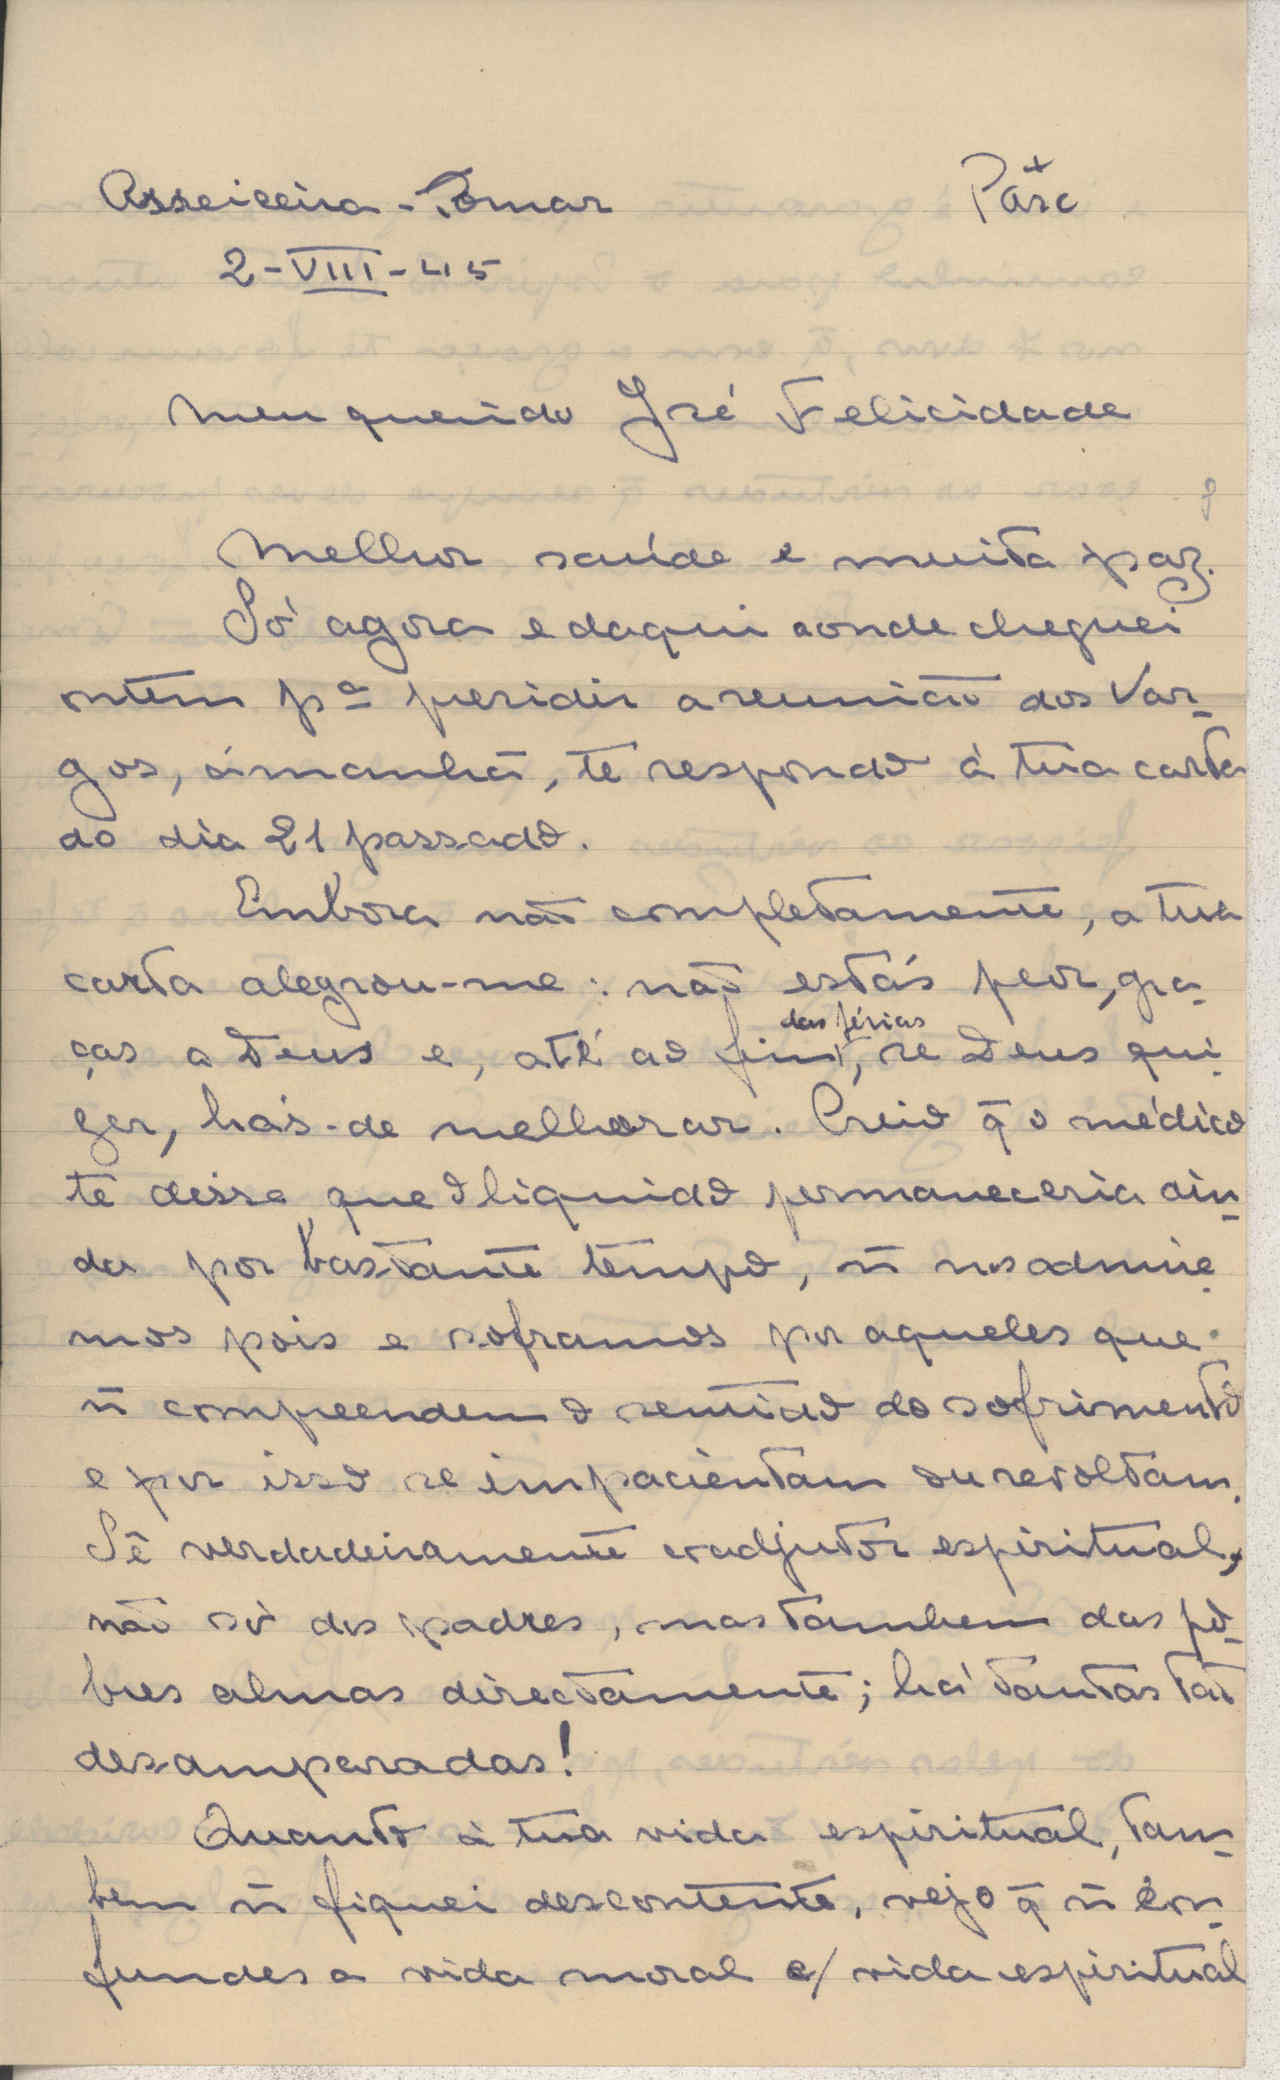 Asseiceira - Tomar
Pax
2-VIII-45
Meu querido José Felicidade
Melhor saúde e muita paz.
Só agora e daqui aonde cheguei
ontem pª presidir a reunião dos Var-
gos, àmanhã, te respondo à tua carta
do dia 21 passado.
Embora não completamente, a tua
carta alegrou-me: não estás peor, gra-
ças a Deus e, até ao fim das férias, se Deus qui-
zer, hás-de melhorar. Creio q̄ o médico
te disse que o liquido permaneceria ain-
da por bastante tempo, ñ nos admire-
mos pois e soframos por aqueles que
ñ compreendem o sentido do sofrimento
e por isso se impacientam ou revoltam.
Sê verdadeiramente coadjutor espiritual,
não só dos padres, mas tambem das po-
bres almas directamente; há tantas tão
desamparadas!
Quanto à tua vida espiritual, tam-
bem ñ fiquei descontente, vejo q̄ ñ con-
fundes a vida moral c/ vida espiritual